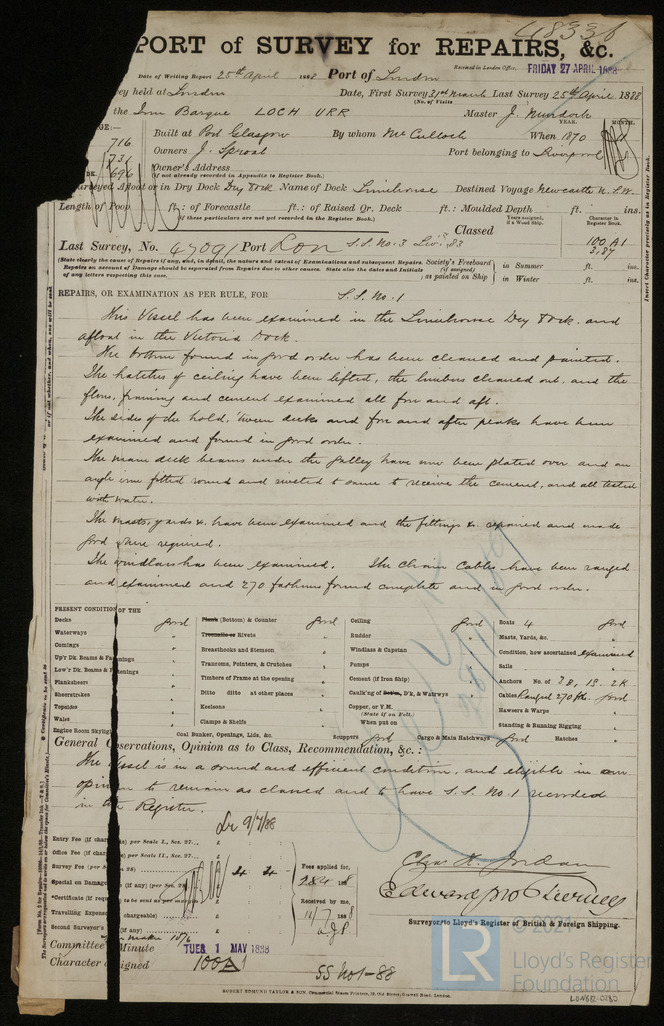 48336
PORT of SURVEY for REPAIRS, &c.
Date of Writing Report 25th April 1888 Port of London
Received in London Office, FRIDAY 27 APRIL 1888
ey held at London Date, First Survey 31st March Last Survey 25th April 1888
(No. of Visits
the Iron Barque LOCH URR Master J. Murdoch
YEAR. MONTH.
GE:—
716 Built at Port Glasgow By whom McCulloch When 1870
731 Owners J. Sproat Port belonging to Liverpool
DK. 696 Owner's Address
(if not already recorded in Appendix to Register Book.)
Surveyed Afloat or in Dry Dock Dry Dock Name of Dock Limehouse Destined Voyage Newcastle N.S.W.
Length of Poop ft.: of Forecastle ft.: of Raised Qr. Deck ft.: Moulded Depth ft. ins.
(if these particulars are not yet recorded in the Register Book.)
Years assigned, if a Wood Ship. Character in Register Book.
Classed
Last Survey, No. 47091 Port Lon S.S. No. 3 Liv. 83 100 A1
3,87
(State clearly the cause of Repairs if any, and, in detail, the nature and extent of Examinations and subsequent Repairs.
Repairs on account of Damage should be separated from Repairs due to other causes. State also the dates and Initials
of any letters respecting this case.
Society's Freeboard (if assigned) as painted on Ship
in Summer ft. ins.
in Winter ft. ins.
Insert Character precisely as in Register Book.
REPAIRS, OR EXAMINATION AS PER RULE, FOR S.S. No. 1
This Vessel has been examined in the Limehouse Dry Dock and
afloat in the Victoria Dock.
The bottom found in good order has been cleaned and painted.
The hatches of ceiling have been lifted, the limbers cleaned out, and the
floors, framing and cement examined all fore and aft.
The sides of the hold, tween decks and fore and after peaks have been
examined and found in good order.
The main deck beams under the galley have now been plated over and an
angle iron fitted round and riveted to same to receive the cement, and all tested
with water.
The masts, yards &c. have been examined and the fittings &c. repaired and made
good where required.
The windlass has been examined. The chain Cables have been ranged
and examined and 270 fathoms found complete and in good order.
PRESENT CONDITION OF THE
Decks good
Waterways "
Comings "
Up'r Dk. Beams & Fastenings "
Low'r Dk. Beams & Fastenings "
Planksheers "
Sheerstrakes "
Topsides "
Wales "
Engine Room Skylights
Plank (Bottom) & Counter good
Treenails or Rivets "
Breasthooks and Stemson "
Transoms, Pointers, & Crutches "
Timbers of Frame at the opening "
Ditto ditto at other places "
Keelsons "
Clamps & Shelfs "
Coal Bunker, Openings, Lids, &c.
Ceiling good
Rudder "
Windlass & Capstan "
Pumps "
Cement (if Iron Ship) "
Caulk'ng of Bottom, D'k, & Watrwys "
Copper, or Y.M.
(State if on Felt.)
When put on
Scuppers good
Cargo & Main Hatchways good
Boats 4 good
Masts, Yards, &c. "
Condition, how ascertained examined
Sails "
Anchors No. of 3B, 1S, 2K
Cables Ranged 270 fths. good
Hawsers & Warps "
Standing & Running Rigging "
Hatches "
General Observations, Opinion as to Class, Recommendation, &c.:
The Vessel is in a sound and efficient condition, and eligible in our
opinion to remain as classed and to have S.S. No. 1 recorded
in the Register.
Lr 9/7/88
Entry Fee (if chargeable) per Scale I., Sec. 27... £
Office Fee (if chargeable) per Scale II., Sec. 27... £
Survey Fee (per Section 28) £ 4 4 -
Special or Damage (if any) (per Sec. 28) £
Certificate (if required to be sent as per margin) £
Travelling Expenses chargeable) £
Second Surveyor's (if any) £
Fees applied for,
28.4 1888
Received by me,
11/7 1888
Chas. H. Jordan
Surveyor to Lloyd's Register of British & Foreign Shipping.
Committee's Minute TUES 1 MAY 1888
Character Assigned 100A1
SS No 1-88
ROBERT EDMUND TAYLOR & SON, Commercial Steam Printers, 19, Old Street, Goswell Road, London.
© 2021
LR
Lloyd's Register
Foundation
LON682-0280